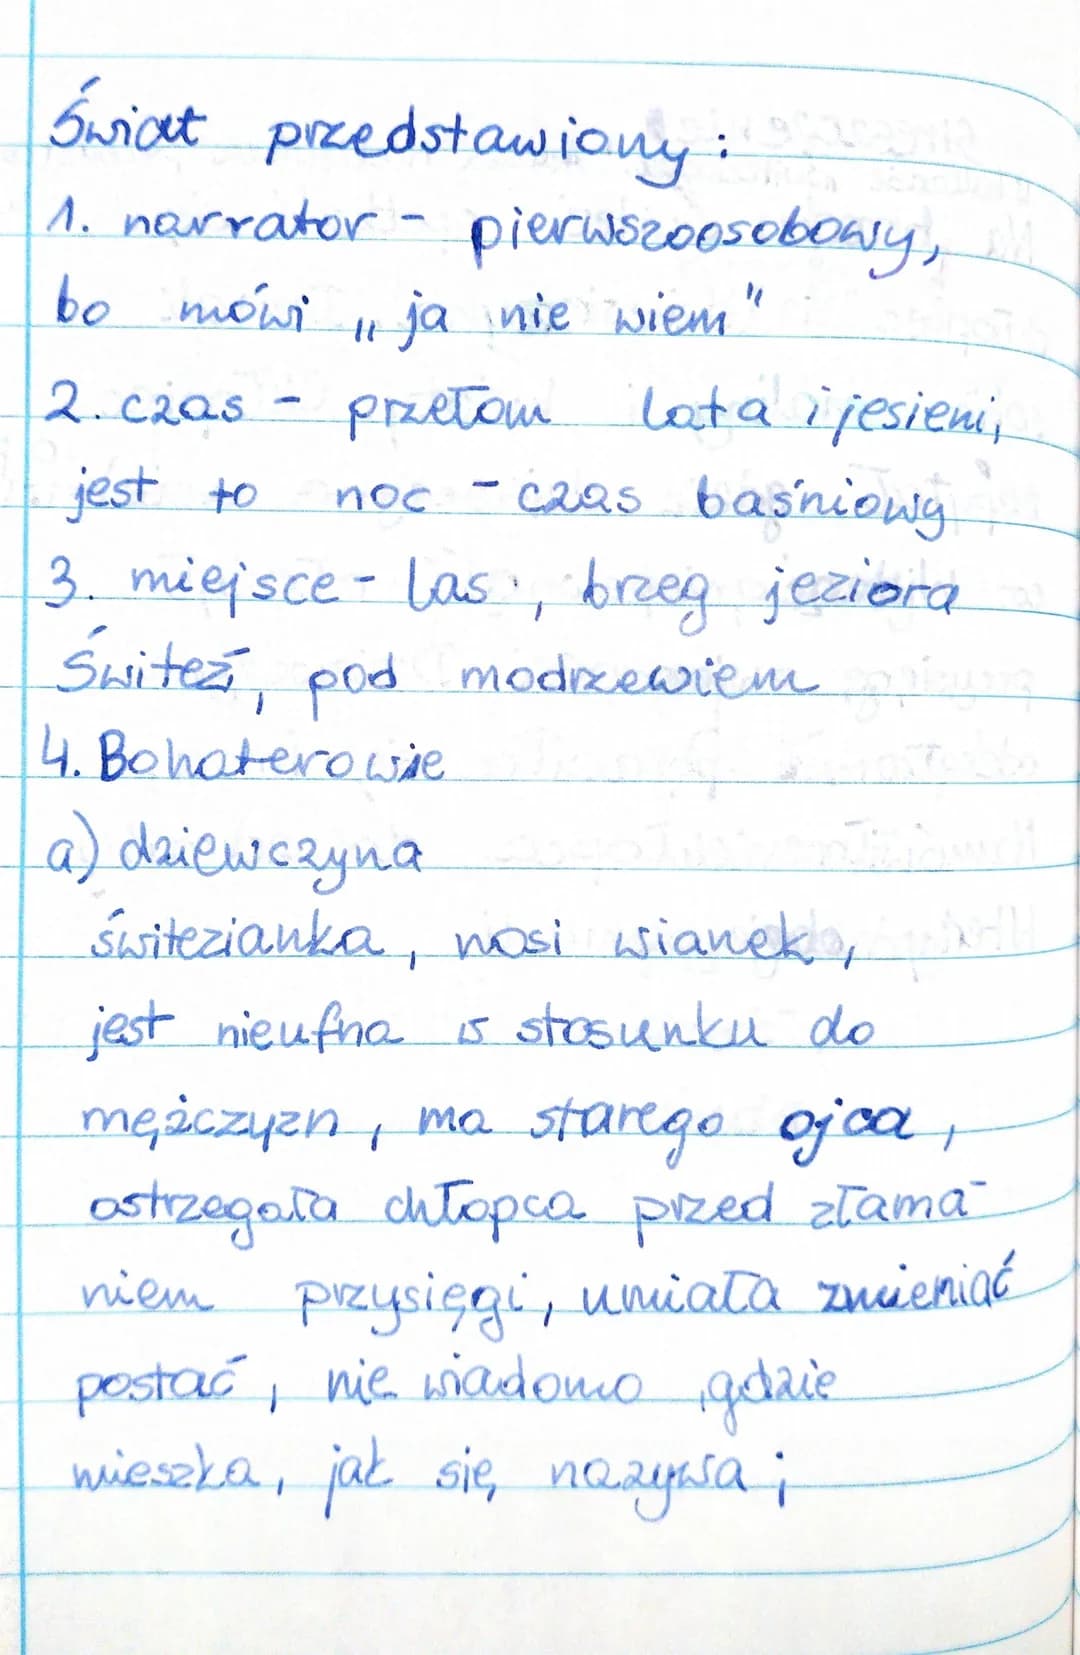 Świat przedstawiony:
1. narrator - pierwszoosobowy,
bo mówi „ja nie wiem"
2. czas - przełom lata i jesieni,
jest to noc - czas baśniowy
3. miejsce - las, brzeg jeziora
Świteź, pod modrzewiem
4. Bohaterowie
a) dziewczyna
świtezianka, nosi wianek,
jest nieufna w stosunku do
mężczyzn, ma starego ojca,
ostrzegała chłopca przed złama-
niem przysięgi, umiała zmieniać
postać, nie wiadomo, gdzie
mieszka, jak się nazywa;